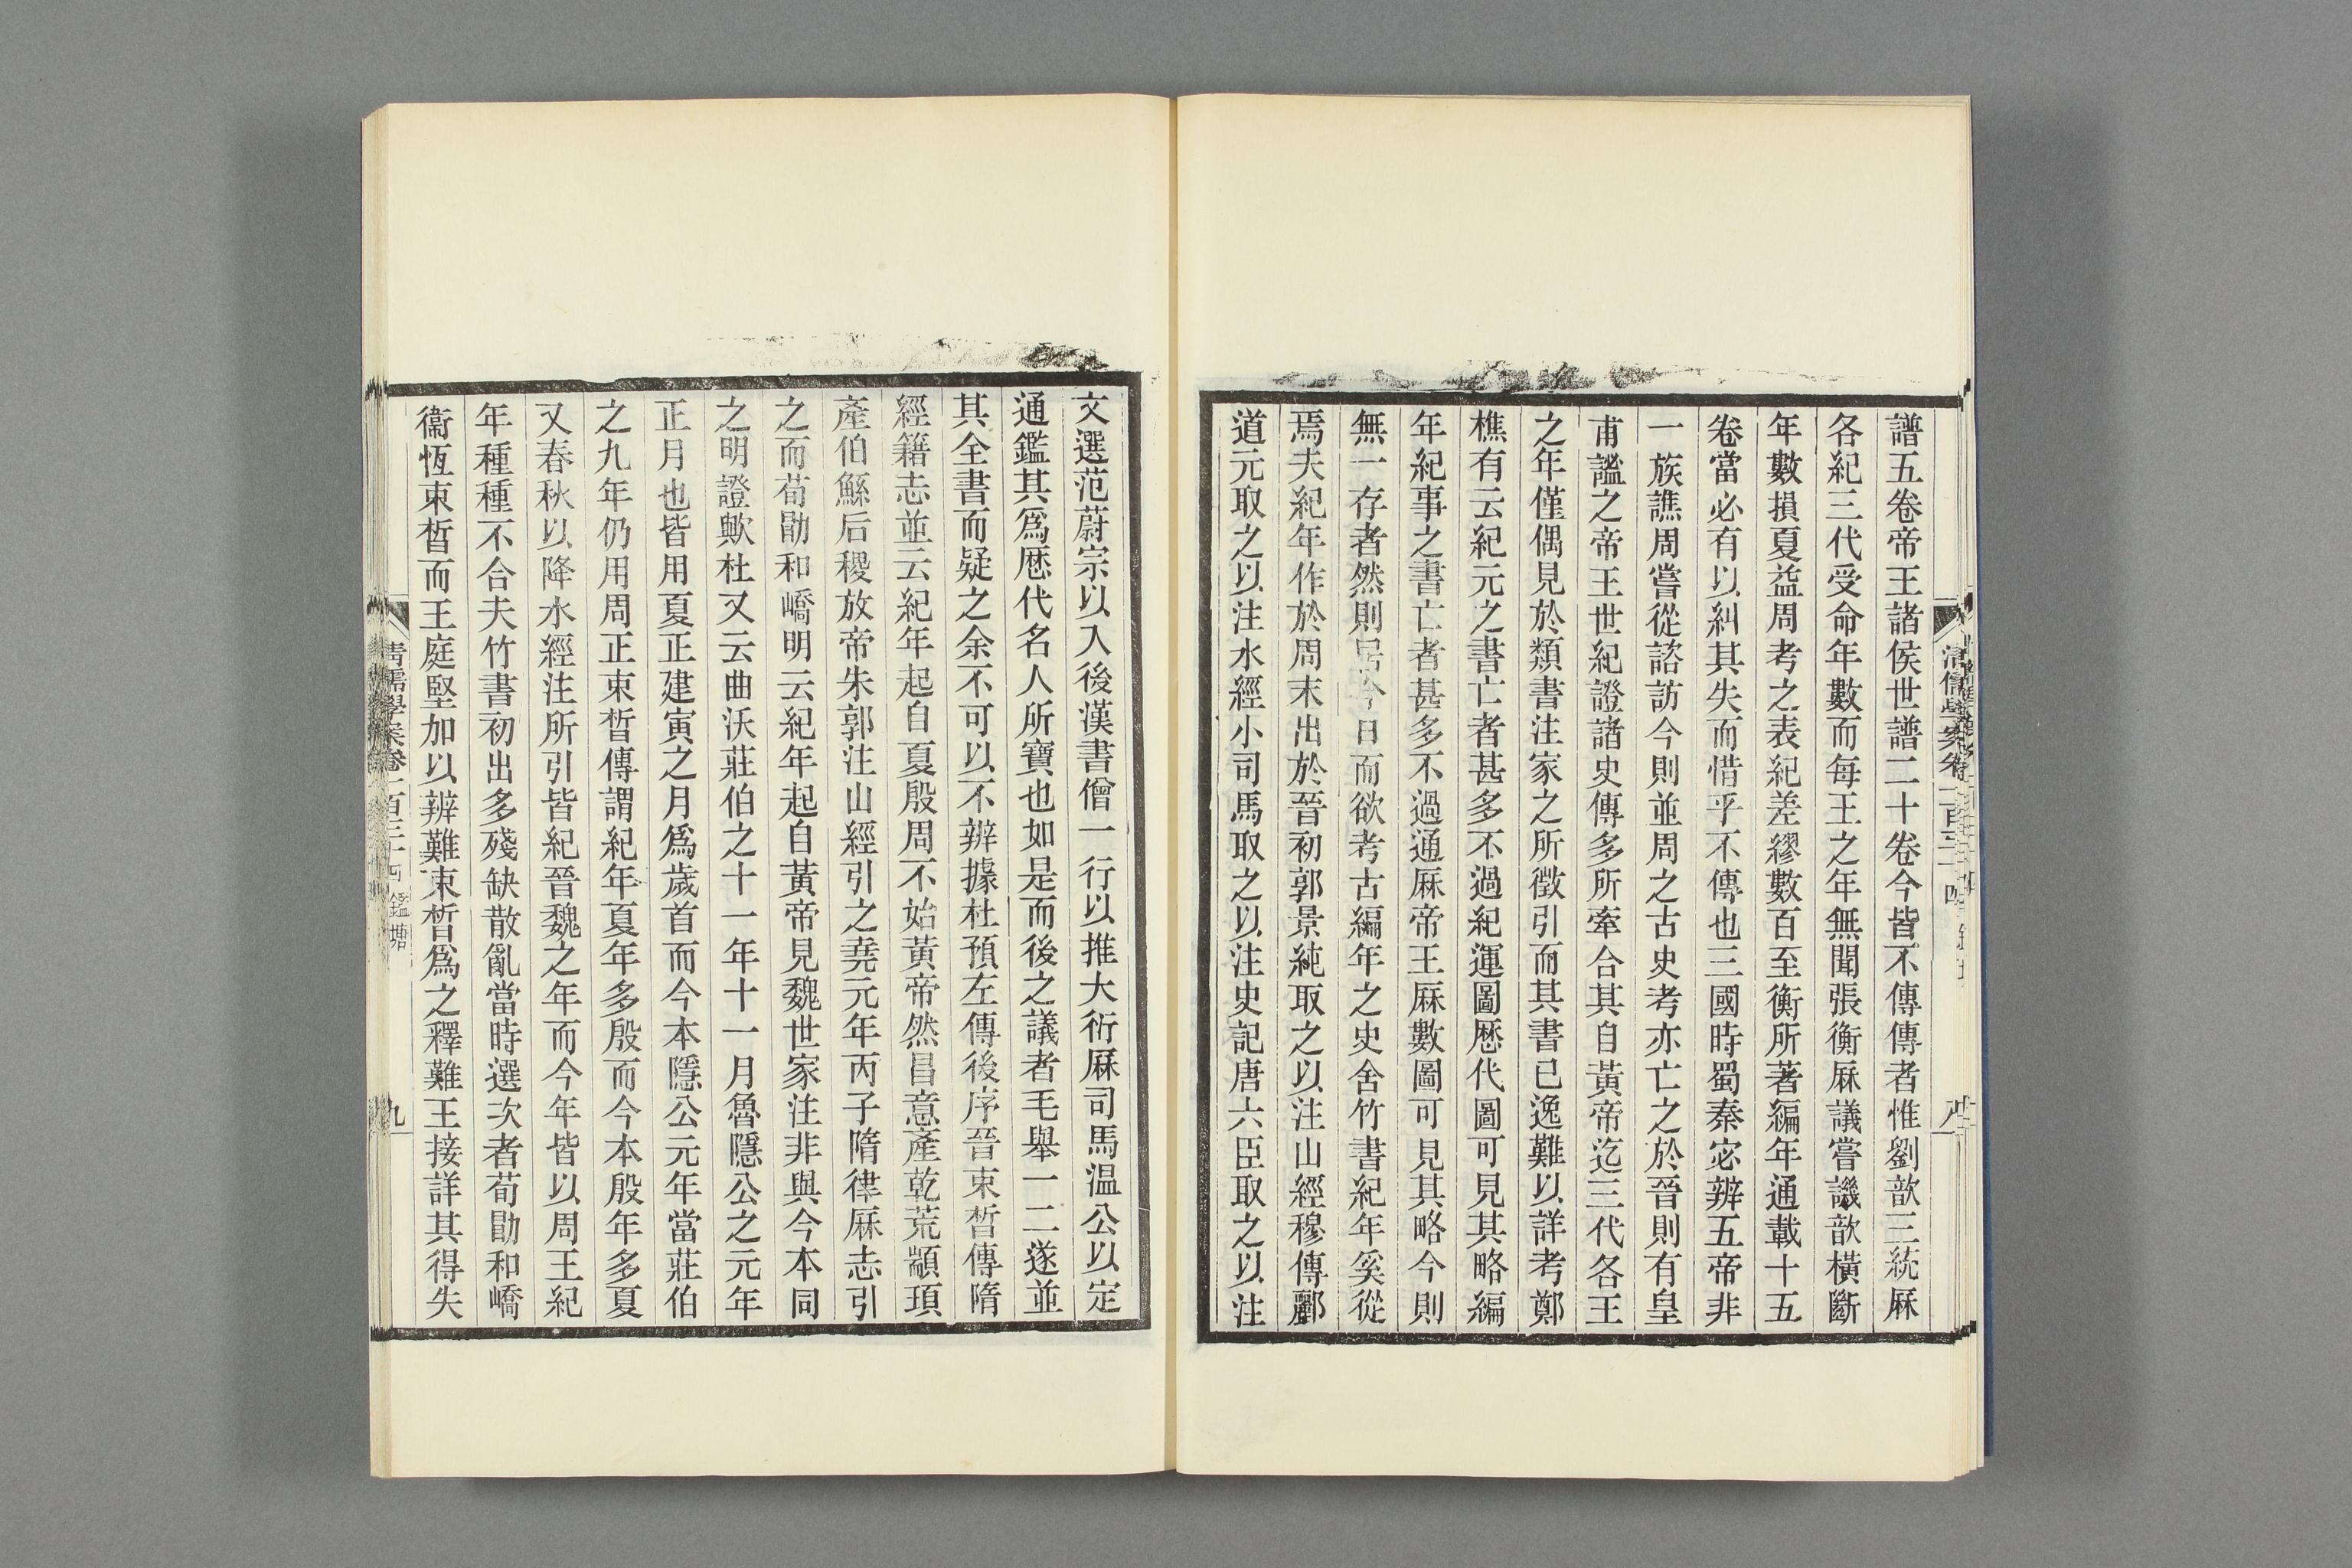 譜五卷帝王諸侯世譜二十卷今皆不傳傳者惟劉歆三統厤
各紀三代受命年數而每王之年無聞張衡厤議嘗譏歆橫斷
年數損夏益周考之表紀差繆數百至衡所著編年通載十五
卷當必有以糾其失而惜乎不傳也三國時蜀秦宓辨五帝非
一族譙周嘗從諮訪今則並周之古史考亦亡之於晉則有皇
甫謐之帝王世紀證諸史傳多所牽合其自黃帝迄三代各王
之年僅偶見於類書注家之所徵引而其書已逸難以詳考鄭
樵有云紀元之書亡者甚多不過紀運圖厯代圖可見其略編
年紀事之書亡者甚多不過通厤帝王厤數圖可見其略今則
無一存者然則居今日而欲考古編年之史舍竹書紀年奚從
焉夫紀年作於周末出於晉初郭景純取之以注山經穆傳酈
道元取之以注水經小司馬取之以注史記唐六臣取之以注
文選范蔚宗以入後漢書僧一行以推大衍厤司馬温公以定
通鑑其爲厯代名人所寶也如是而後之議者毛舉一二遂並
其全書而疑之余不可以不辨據杜預左傳後序晉束晳傳隋
經籍志並云紀年起自夏殷周不始黃帝然昌意產乾荒顓頊
產伯鯀后稷放帝朱郭注山經引之堯元年丙子隋律厤志引
之而荀勖和嶠明云紀年起自黃帝見魏世家注非與今本同
之明證歟杜又云曲沃莊伯之十一年十一月魯隱公之元年
正月也皆用夏正建寅之月爲歲首而今本隱公元年當莊伯
之九年仍用周正束晳傳謂紀年夏年多殷而今本殷年多夏
又春秋以降水經注所引皆紀晉魏之年而今年皆以周王紀
年種種不合夫竹書初出多殘缺散亂當時選次者荀勖和嶠
衞恆束晳而王庭堅加以辨難束晳爲之釋難王接詳其得失
清儒學案卷一百三十四 鑑塘
九